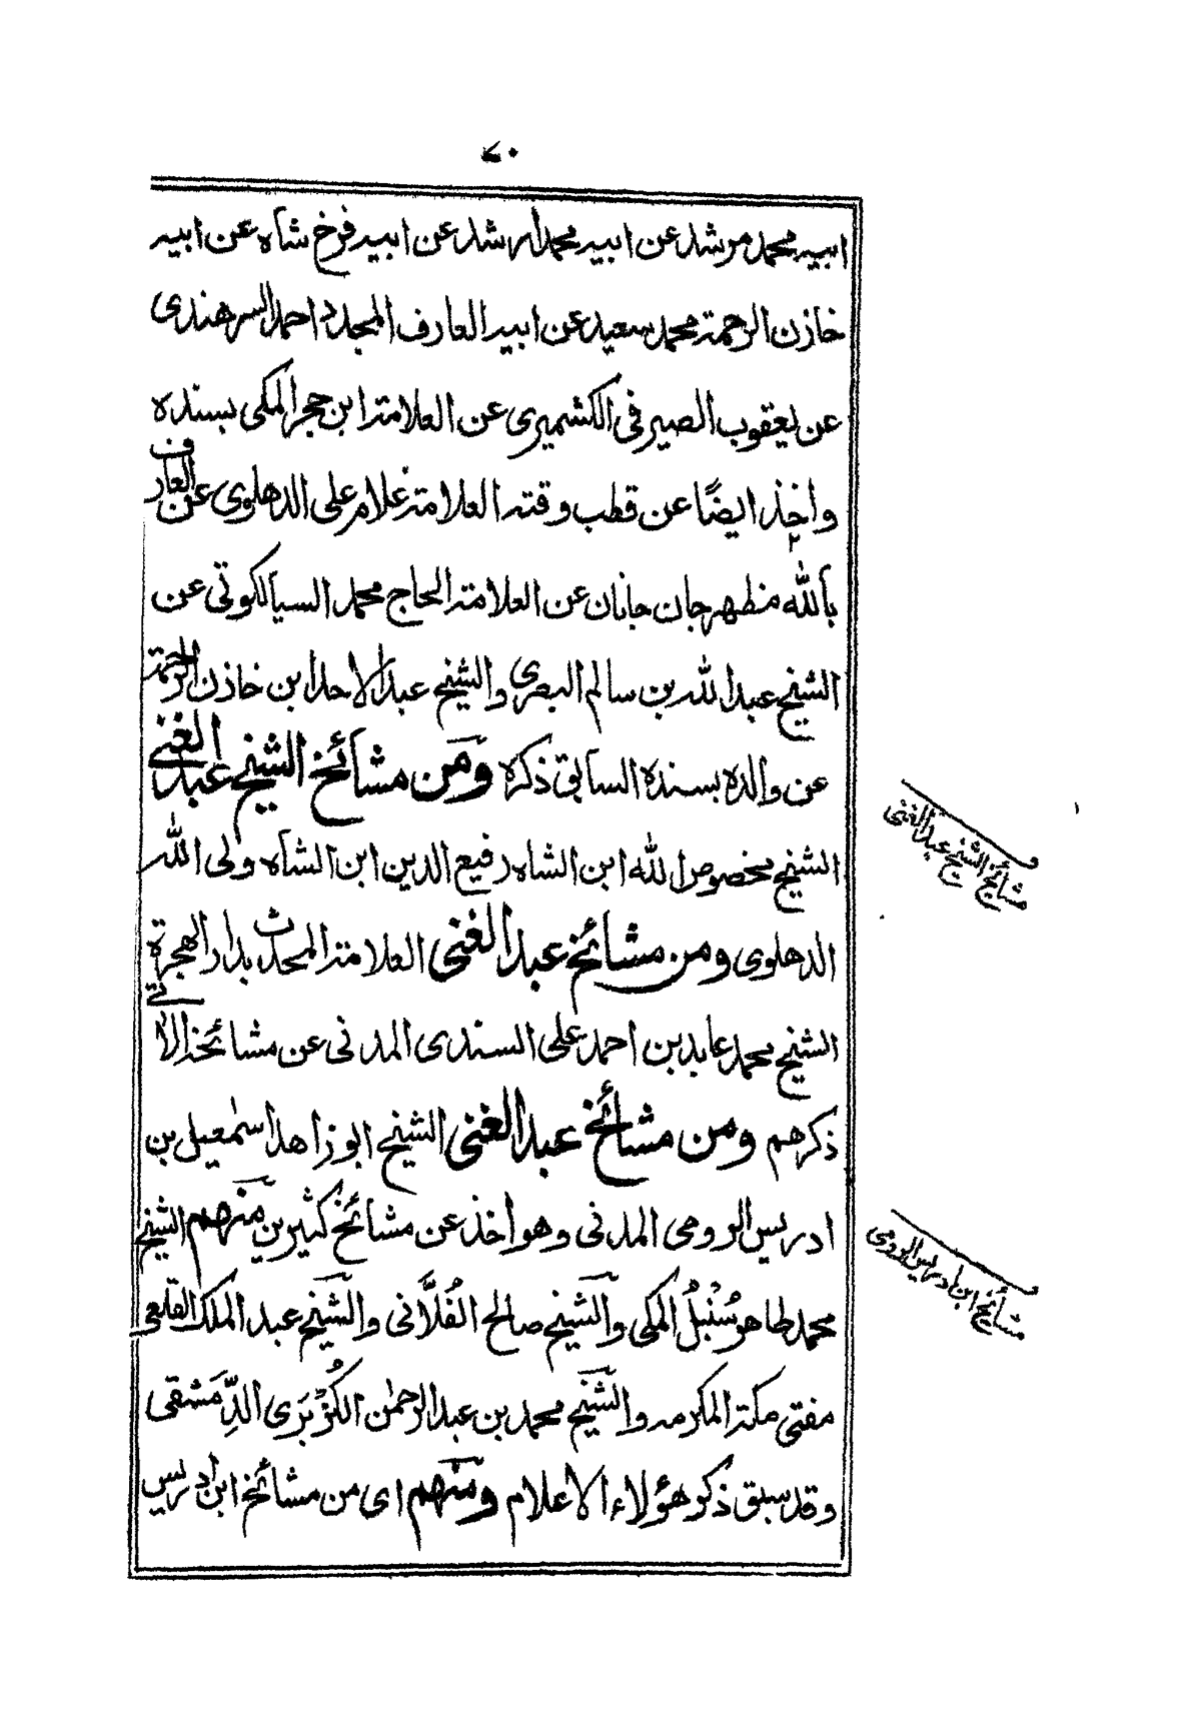 ٧٠
ابيه محمد مرشد عن ابيه محمد ارشد عن ابيه فرخ شاه عن ابيه
خازن الرحمة محمد سعيد عن ابيه العارف المجدد احمد السرهندى
عن يعقوب الصيرفى الكشميرى عن العلامة ابن حجر المكى بسنده
واخذ ايضًا عن قطب وقته العلامة غلام على الدهلوى عن العارف
بالله مظهر جان جانان عن العلامة الحاج محمد السيالكوتى عن
الشيخ عبد الله بن سالم البصرى والشيخ عبد الاحد ابن خازن الرحمة
عن والده بسنده السابق ذكره ومن مشائخ الشيخ عبد الغنى
الشيخ مخصوص الله ابن الشاه رفيع الدين ابن الشاه ولى الله
الدهلوى ومن مشائخ عبد الغنى العلامة المحدث بدار الهجرة
الشيخ محمد عابد بن احمد على السندى المدنى عن مشائخه الاٰتى
ذكرهم ومن مشائخ عبد الغنى الشيخ ابو زاهد اسمٰعيل بن
ادريس الرومى المدنى وهو اخذ عن مشائخ كثيرين منهم الشيخ
محمد طاهر سُنْبُلُ المكى والشيخ صالح الفُلَّانى والشيخ عبد الملك القلعى
مفتى مكة المكرمه والشيخ محمد بن عبد الرحمٰن الكُزْبَرَى الدِّمَشقى
وقد سبق ذكر هؤلاء الاعلام ومنهم اى من مشائخ ابن ادريس
مشائخ الشيخ عبد الغنى
مشائخ ابن ادريس الرومى